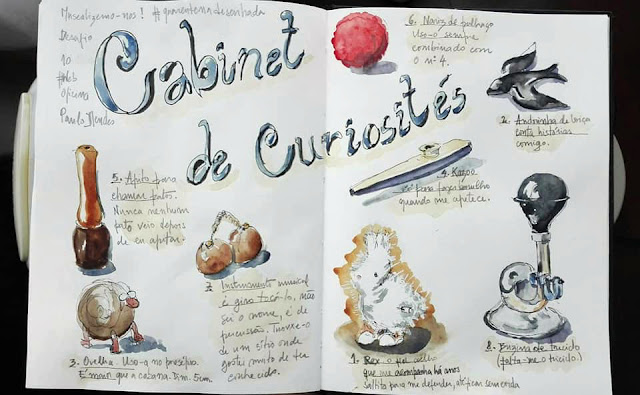 Musealizemo-nos! #quarentena desenhada
Desafio
10
#dcb
oficina
Paulo Mendes
Cabinet
de Curiosités
6. Nariz de palhaço
Uso-o sempre
combinado com
o nº 4.
2. Andorinha de loiça
conta histórias
comigo.
5. Apito para
chamar patos.
Nunca nenhum
pato veio depois
de eu apitar.
4. Kazoo
só para fazer barulho
quando me apetece.
7. Instrumento musical
é giro tocá-lo, não
sei o nome, é de
percussão. Trouxe-o
de um sítio onde
gostei muito de ter
conhecido.
3. Ovelha. Uso-a no presépio.
É maior que a cabana. Dim. 5cm.
1. Rex o meu
que me acompanha há anos
saltita para me defender, até ficar sem corda
8. Buzina de triciclo
(falta-me o triciclo.)